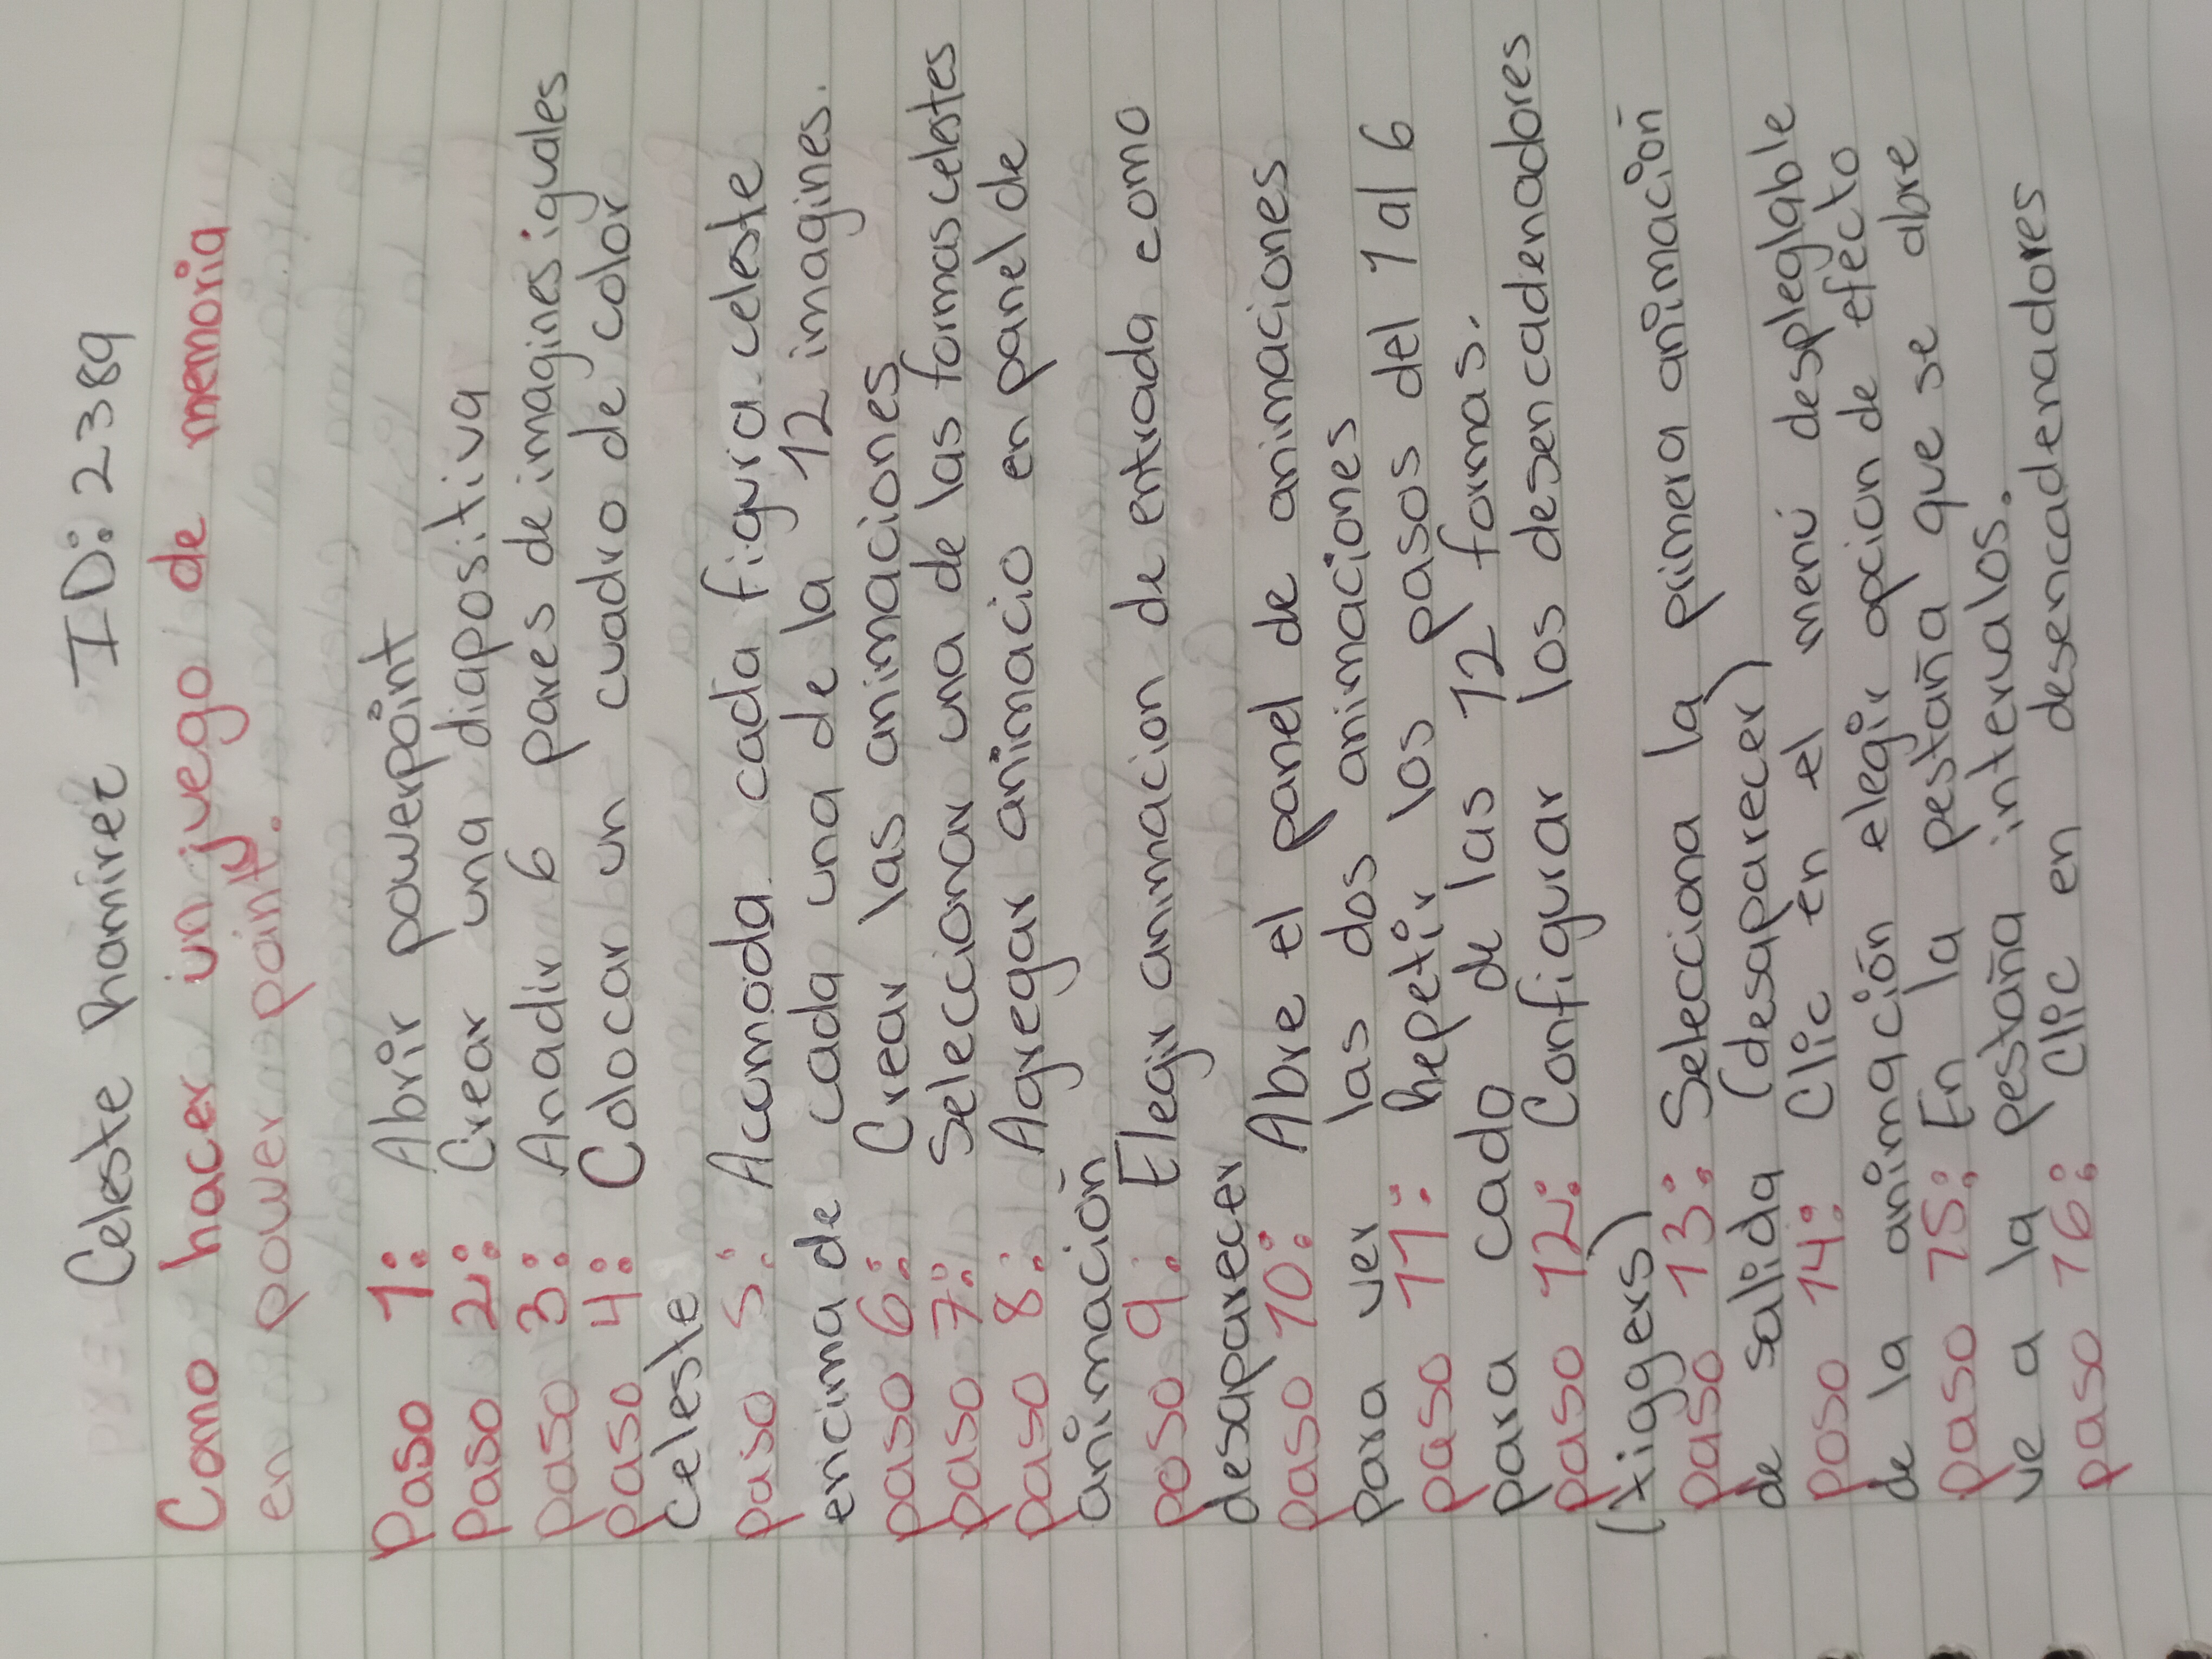 Celeste Ramirez ID: 2389
Como hacer un juego de memoria
en power point.
Paso 1: Abrir powerpoint
Paso 2: Crear una diapositiva
paso 3: Anadir 6 pares de imagines iguales
paso 4: Colocar un cuadro de color
celeste
paso 5: Acomoda cada figura celeste
encima de cada una de la 12 imagines.
paso 6: Crear las animaciones
paso 7: Seleccionar una de las formas celestes
paso 8: Agregar animacio en panel de
animación
poso 9: Elegir animacion de entrada como
desaparecer
paso 10: Abre el panel de animaciones
para ver las dos animaciones
paso 11: Repetir los pasos del 1 al 6
para cado de las 12 formas.
paso 12: Configurar los desencadenadores
(triggers)
paso 13: Selecciona la primera animación
de salida (desaparecer)
poso 14: Clic en el menú despleglable
de la animación elegir opcion de efecto
paso 15: En la pestaña que se abre
ve a la pestaña intervalos.
paso 16: Clic en desencadenadores